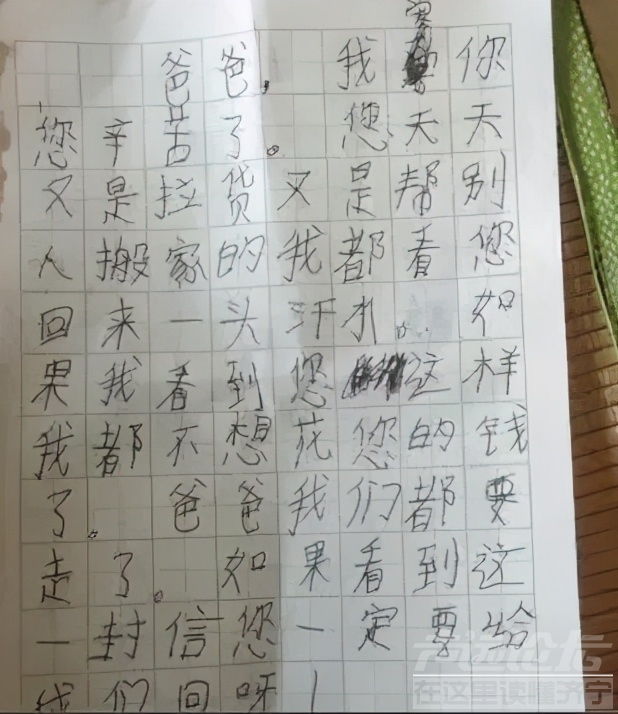 爸爸，我要你
您辛苦了。您天天
又是拉货又是帮别
人搬家的我都看您
回来一头汗水。如
果我看到您这样
我都不想花您的钱
了。爸爸我们都要
走了。如果看到这
一封信您一定要给
我们回呀！
在这里读懂济宁